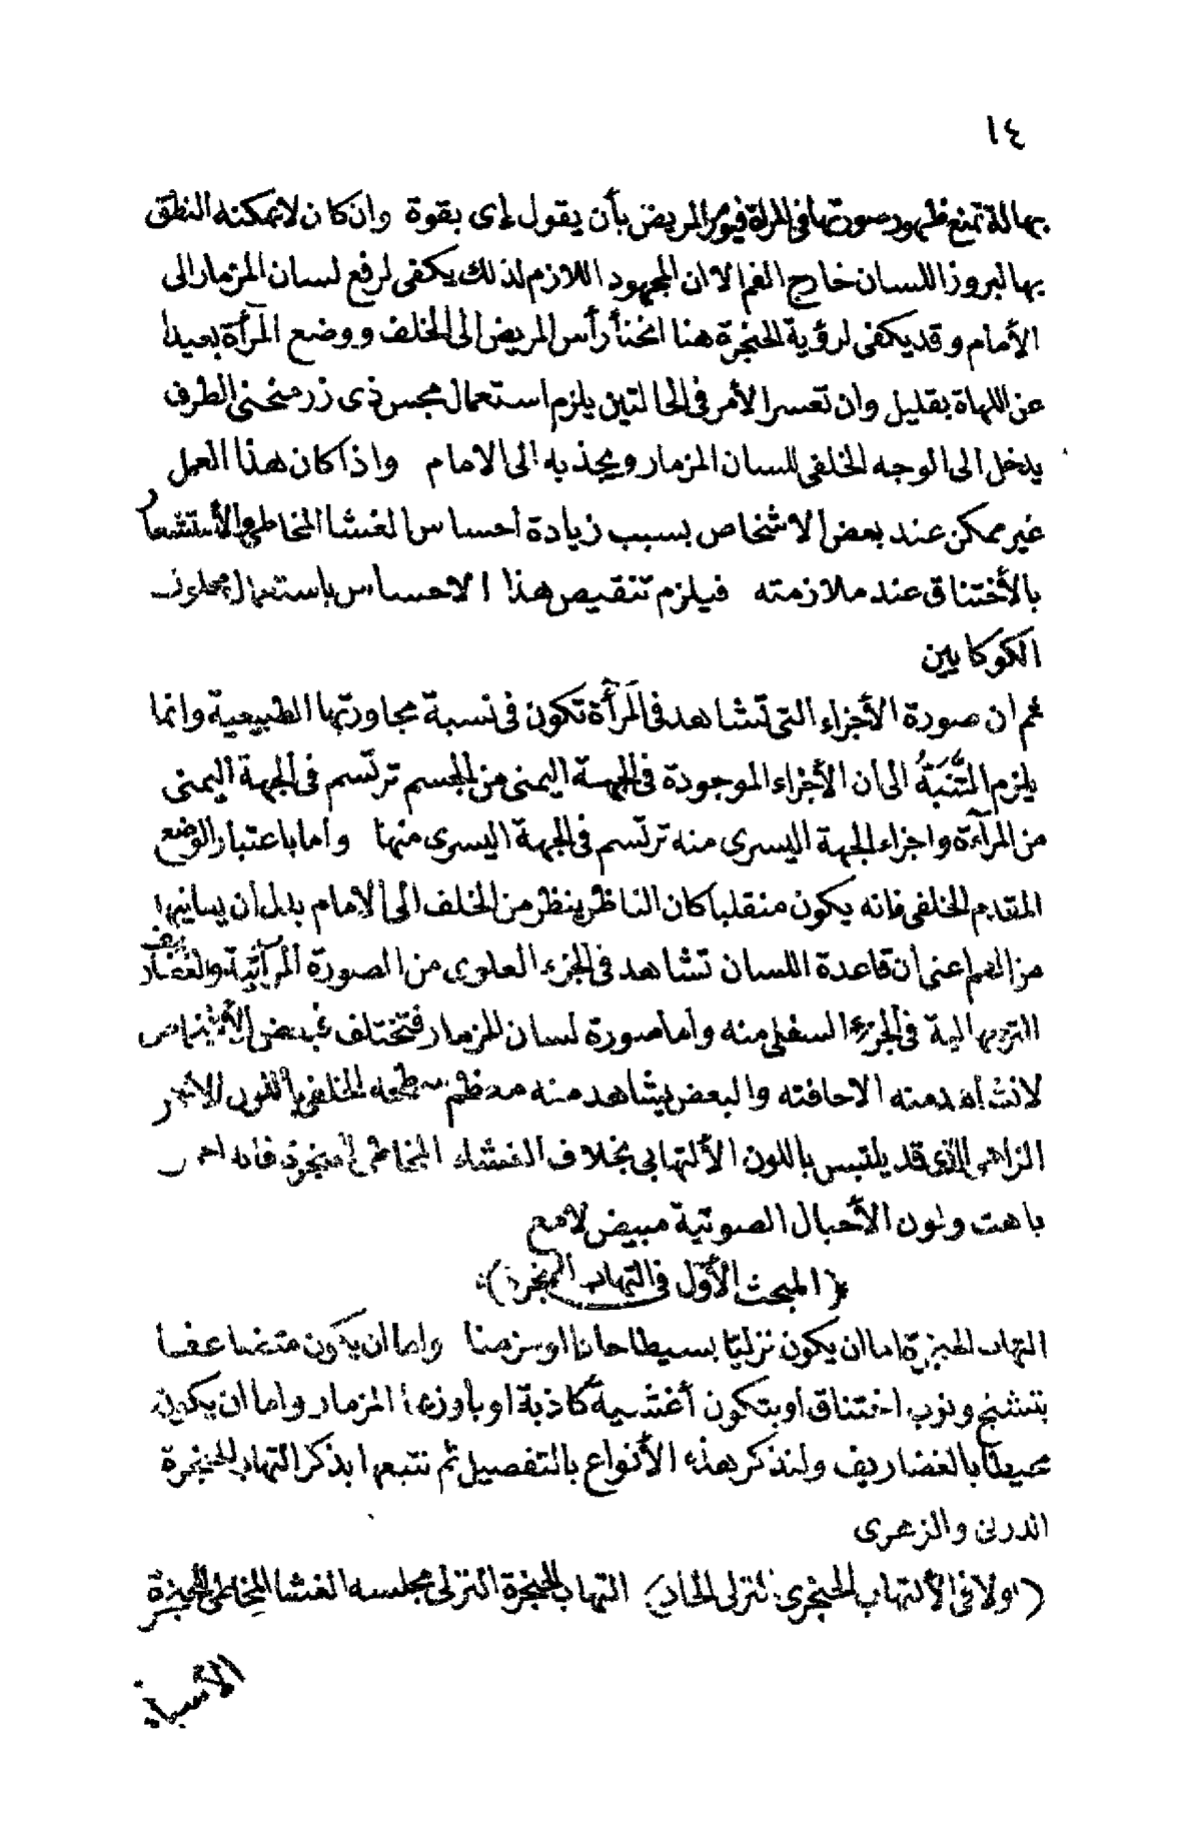 ١٤
بحالة تمنع ظهور صورتها فى المرآة فيؤمر المريض بأن يقول إى بقوة وان كان لا يمكنه النطق
بها لبروز اللسان خارج الفم الا ان المجهود اللازم لذلك يكفى لرفع لسان المزمار الى
الأمام وقد يكفى لرؤية الحنجرة هنا انحنأ رأس المريض الى الخلف ووضع المرآة بعيدا
عن اللهاة بقليل وان تعسر الأمر فى الحالتين يلزم استعمال مجس ذى زر منحنى الطرف
يدخل الى الوجه الخلفى للسان المزمار ويجذبه الى الامام واذا كان هذا العمل
غير ممكن عند بعض الاشخاص بسبب زيادة احساس الغشا المخاطى والأستشعار
بالأختناق عند ملازمته فيلزم تنقيص هذا الاحساس باستعمال محلول
الكوكايين
ثم ان صورة الأجزاء التى تشاهد فى المرآة تكون فى نسبة مجاورتها الطبيعية وانما
يلزم التنبه الى ان الأجزاء الموجودة فى الجهة اليمنى من الجسم ترتسم فى الجهة اليمنى
من المرآة واجزاء الجهة اليسرى منه ترتسم فى الجهة اليسرى منها واما باعتبار الوضع
المقدم الخلفى فانه يكون منقلبا كان الناظر ينظر من الخلف الى الامام بدل ان
من الفم اعنى ان قاعدة اللسان تشاهد فى الجزء العلوى من الصورة المرآتية والغضاريف
الترجهالية فى الجزء السفلى منه واما صورة لسان المزمار فتختلف فبعض الأشخاص
لا نشاهد منه الا حافته والبعض يشاهد منه معظم سطحه الخلفى باللون الأحمر
الزاهى الذى قد يلتبس باللون الألتهابى بخلاف الغشاء المخاطى الحنجرى فانه احمر
باهت ولون الأحبال الصوتية مبيض لامع
(المبحث الأول فى التهاب الحنجرة)
التهاب الحنجرة اما ان يكون نزليا بسيطا حادا او مزمنا واما ان يكون متضاعفا
بتشنج ونوب اختناق او بتكون أغشية كاذبة او بأوزيما المزمار واما ان يكون
محيطا بالغضاريف ولنذكر هذه الأنواع بالتفصيل ثم نتبعها بذكر التهاب الحنجرة
الدرنى والزهرى
(اولا فى الألتهاب الحنجرى النزلى الحاد) التهاب الحنجرة النزلى مجلسه الغشا المخاطى للحنجرة
الأسباب